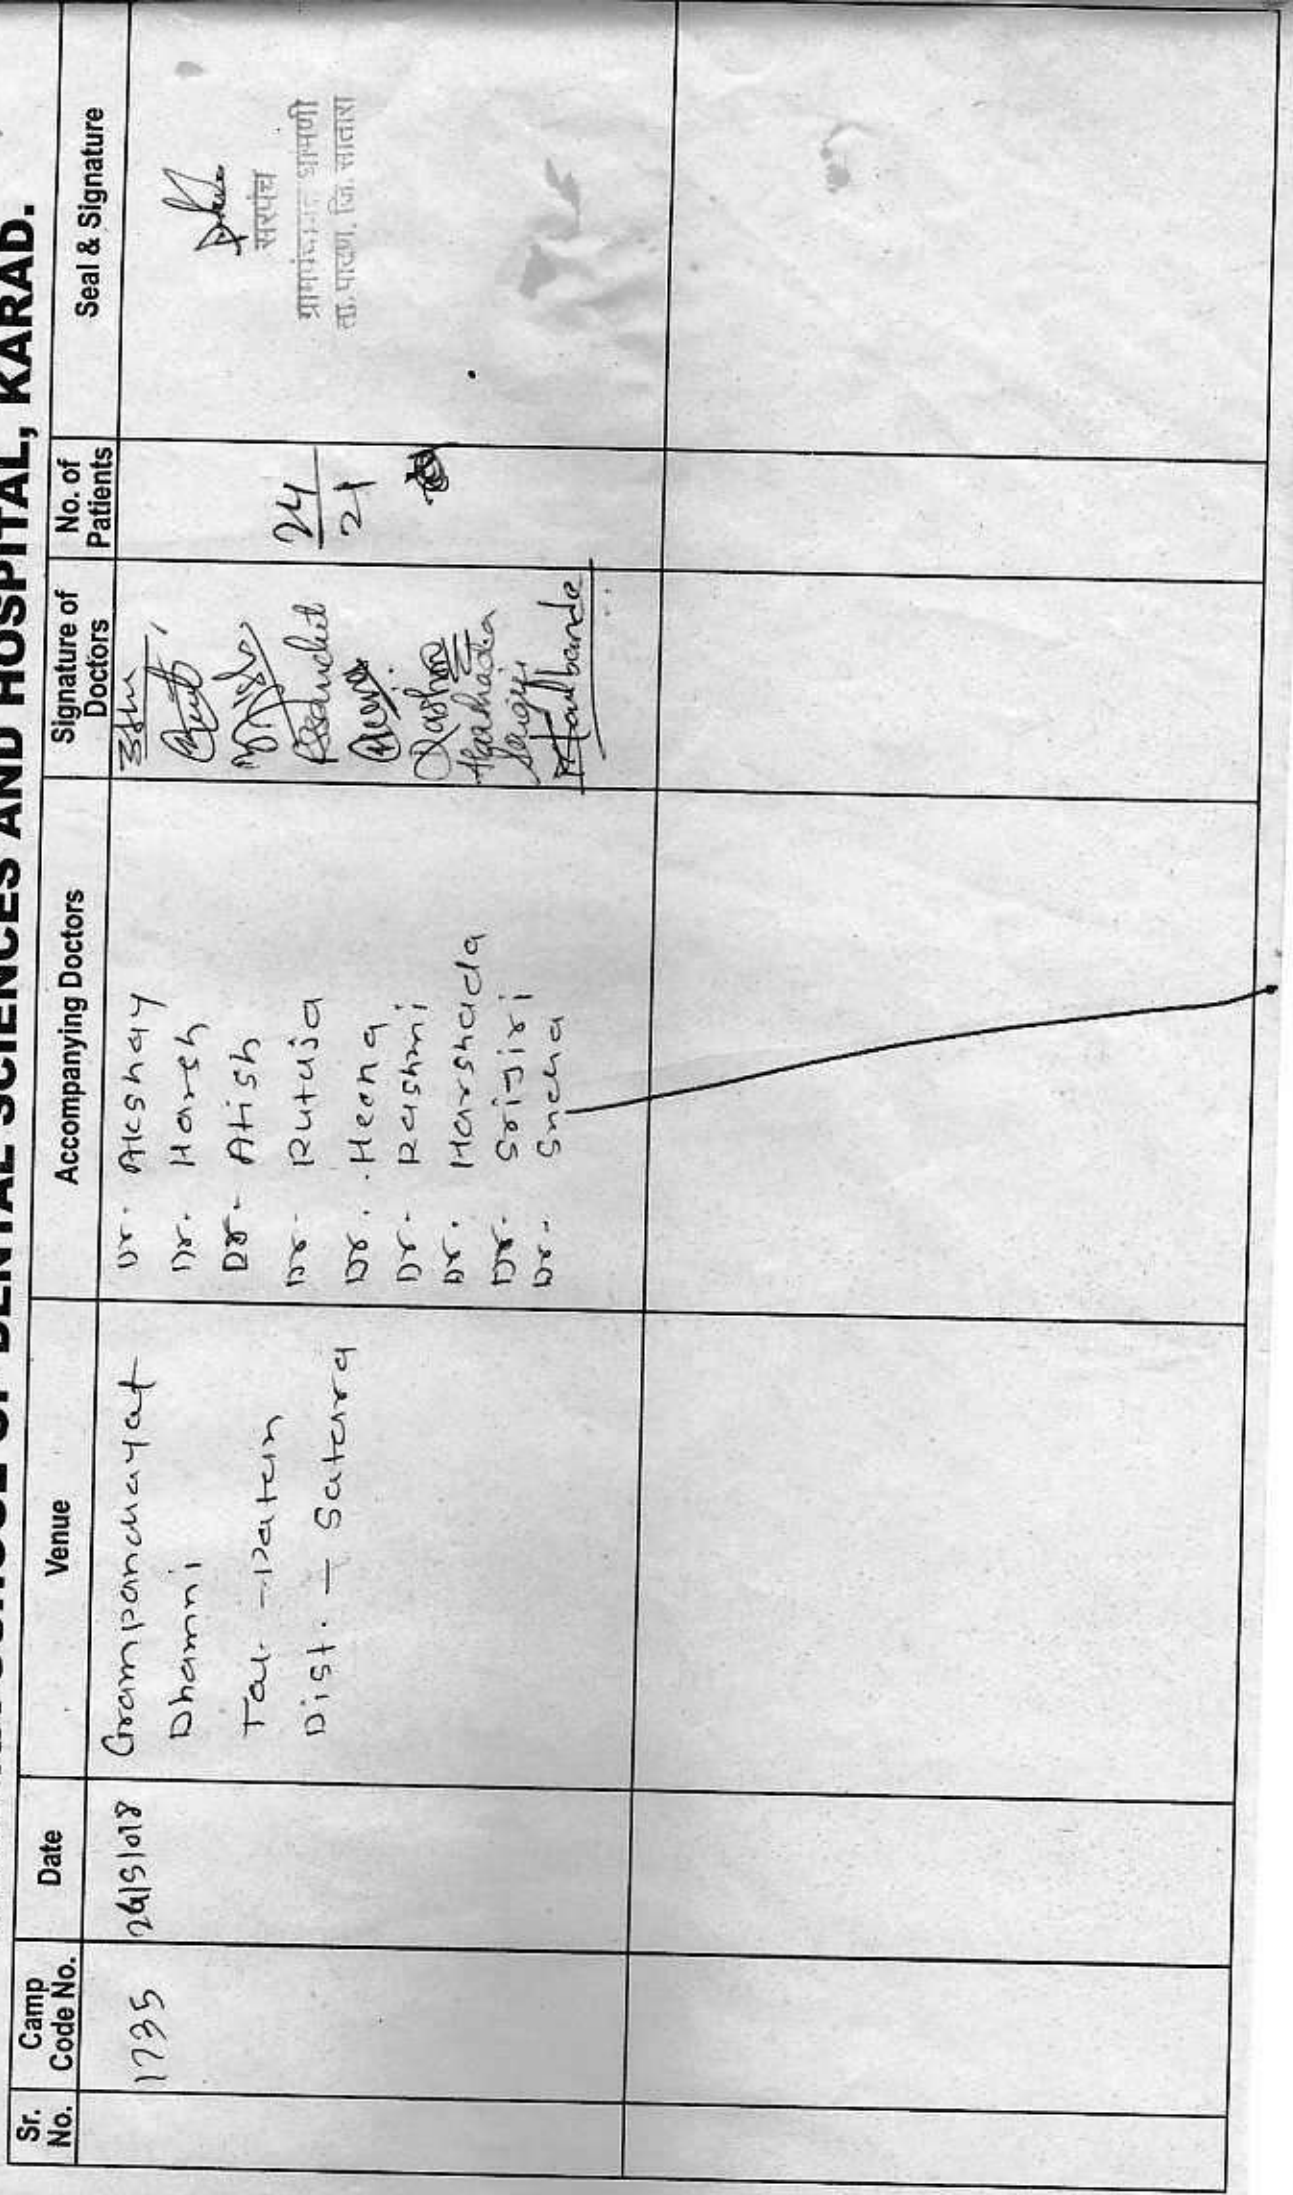 OF DENTAL SCIENCES AND HOSPITAL, KARAD.
Sr. No.
Camp Code No.
Date
Venue
Accompanying Doctors
Signature of Doctors
No. of Patients
Seal & Signature
1735
Grampanchayat
Dhamni
Tal - Patan
Dist. - Satara
Dr. Akshay
Dr. Harsh
Dr. Atish
Dr. Rutuja
Dr. Heena
Dr. Rashmi
Dr. Harshada
Dr. Srijiri
Dr. Sneha
Heena
Rashmi
Harshada
24
21
सरपंच
ग्रामपंचायत धामणी
ता. पाटण, जि. सातारा